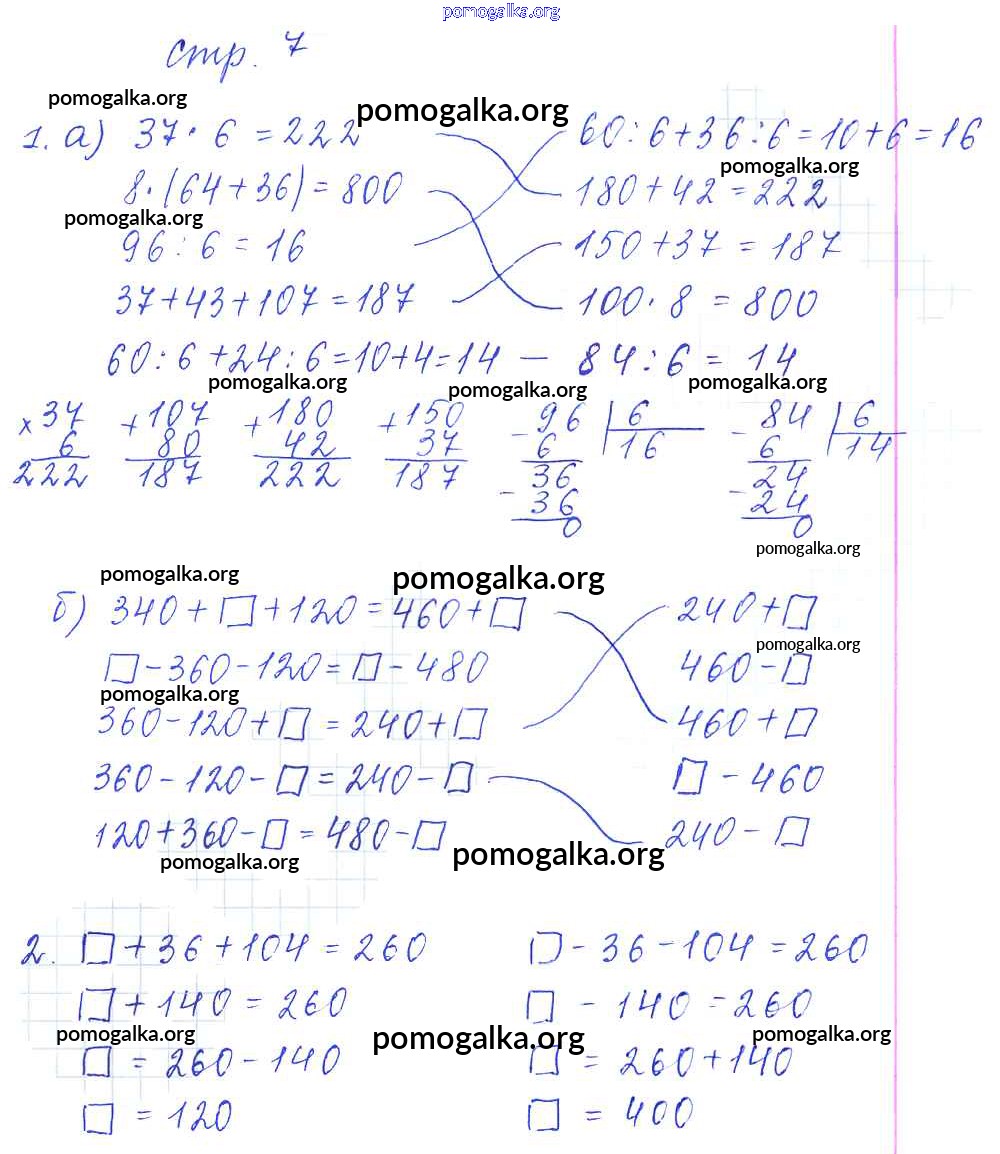 pomogalka.org
стр. 7
pomogalka.org
pomogalka.org
1. а) 37 · 6 = 222 60 : 6 + 36 : 6 = 10 + 6 = 16
pomogalka.org
8 · (64 + 36) = 800 180 + 42 = 222
pomogalka.org
96 : 6 = 16 150 + 37 = 187
37 + 43 + 107 = 187 100 · 8 = 800
60 : 6 + 24 : 6 = 10 + 4 = 14 — 84 : 6 = 14
pomogalka.org pomogalka.org pomogalka.org
× 37 + 107 + 180 + 150 - 96 | 6 - 84 | 6
6 80 42 37 6 16 6 14
222 187 222 187 36 24
- 36 - 24
0 0
pomogalka.org
pomogalka.org pomogalka.org
б) 340 + □ + 120 = 460 + □ 240 + □
pomogalka.org
□ - 360 - 120 = □ - 480 460 - □
pomogalka.org
360 - 120 + □ = 240 + □ 460 + □
360 - 120 - □ = 240 - □ □ - 460
120 + 360 - □ = 480 - □ 240 - □
pomogalka.org pomogalka.org
2. □ + 36 + 104 = 260 □ - 36 - 104 = 260
□ + 140 = 260 □ - 140 = 260
pomogalka.org pomogalka.org pomogalka.org
□ = 260 - 140 □ = 260 + 140
□ = 120 □ = 400